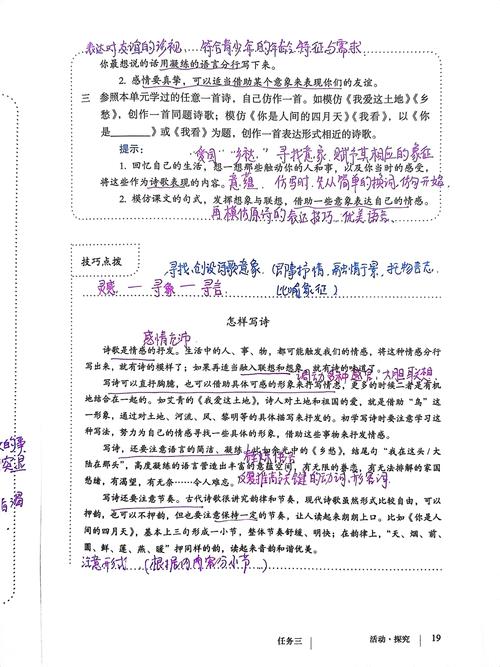 表达对友谊的珍视，符合青少年的年龄特征与需求
你最想说的话用凝练的语言分行写下来。
2. 感情要真挚，可以适当借助某个意象来表现你们的友谊。
三 参照本单元学过的任意一首诗，自己仿作一首。如模仿《我爱这土地》《乡
愁》，创作一首同题诗歌；模仿《你是人间的四月天》《我看》，以《你
是______》或《我看》为题，创作一首表达形式相近的诗歌。
提示：
“爱国”“乡愁” 寻找意象，赋予其相应的象征
1. 回忆自己的生活，想一想那些触动你的人和事，以及你当时的感受，
将这些作为诗歌表现的内容。意蕴，仿写时，先从简单的换词、仿句开始，
2. 模仿课文的句式，发挥想象与联想，借助一些意象表达自己的情感。
再模仿原诗的表达技巧、优美语言
技巧点拨
寻找、创设诗歌意象（因情抒情，融情于景，托物言志，
灵感 — 寻象 — 寻言 比喻象征）
怎样写诗
感情充沛
诗歌是情感的抒发。生活中的人、事、物，都可能触发我们的情感，将这种情感分行
写出来，就有诗的模样了；如果再适当融入联想和想象，就有诗的味道了。
调动多种感官，大胆联想
写诗可以直抒胸臆，也可以借助具体可感的形象来抒写情志，更多的时候二者是有机
地结合在一起的。如艾青的《我爱这土地》，诗人对土地和祖国的爱，就是借助“鸟”这
一形象，通过对土地、河流、风、黎明等的具体描写来抒发的。初学写诗时要注意学习这
种写法，努力为自己的情感寻找一些具体的形象，借助这些事物来抒发情感。
锤炼语言
写诗，还要注意语言的简洁、凝练。比如余光中的《乡愁》，结尾句“我在这头/大
陆在那头”，高度凝练的语言营造出丰富的意蕴空间，有无限的眷恋，有无法排解的家国
愁绪，有渴望，有无奈……令人难忘。反复推敲关键的动词、形容词
写诗还要注意节奏。古代诗歌很讲究韵律和节奏，现代诗歌虽然形式比较自由，可以
押韵，也可以不押韵，但也要注意保持一定的节奏，让人读起来朗朗上口。比如《你是人
间的四月天》，基本上三句形成一小节，整体节奏舒缓、明快；在韵律上，“天、烟、前、
圆、鲜、莲、燕、暖”押同样的韵，读起来音韵和谐优美。
注意形式（根据内容分小节）
任务三 | 活动·探究 | 19